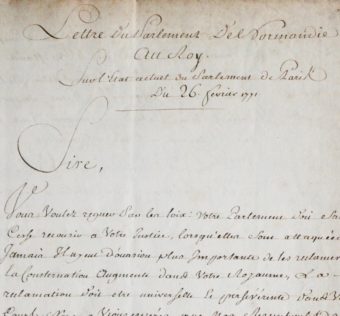 Lettre Du Parlement De Normandie
Au Roy.
Sur l'Etat actuel du Parlement de Paris
Du 26 fevrier 1771
Sire,
Vous Voulez regner Par les loix: Votre Parlement Doit
Cesse recourir a Votre Justice, lorsqu'elles sont attaquée
Jamais Il n'eut d'occasion plus Importante de les reclamer
la Consternation Augmente dans Votre Royaume, La
reclamation Doit etre universelle &